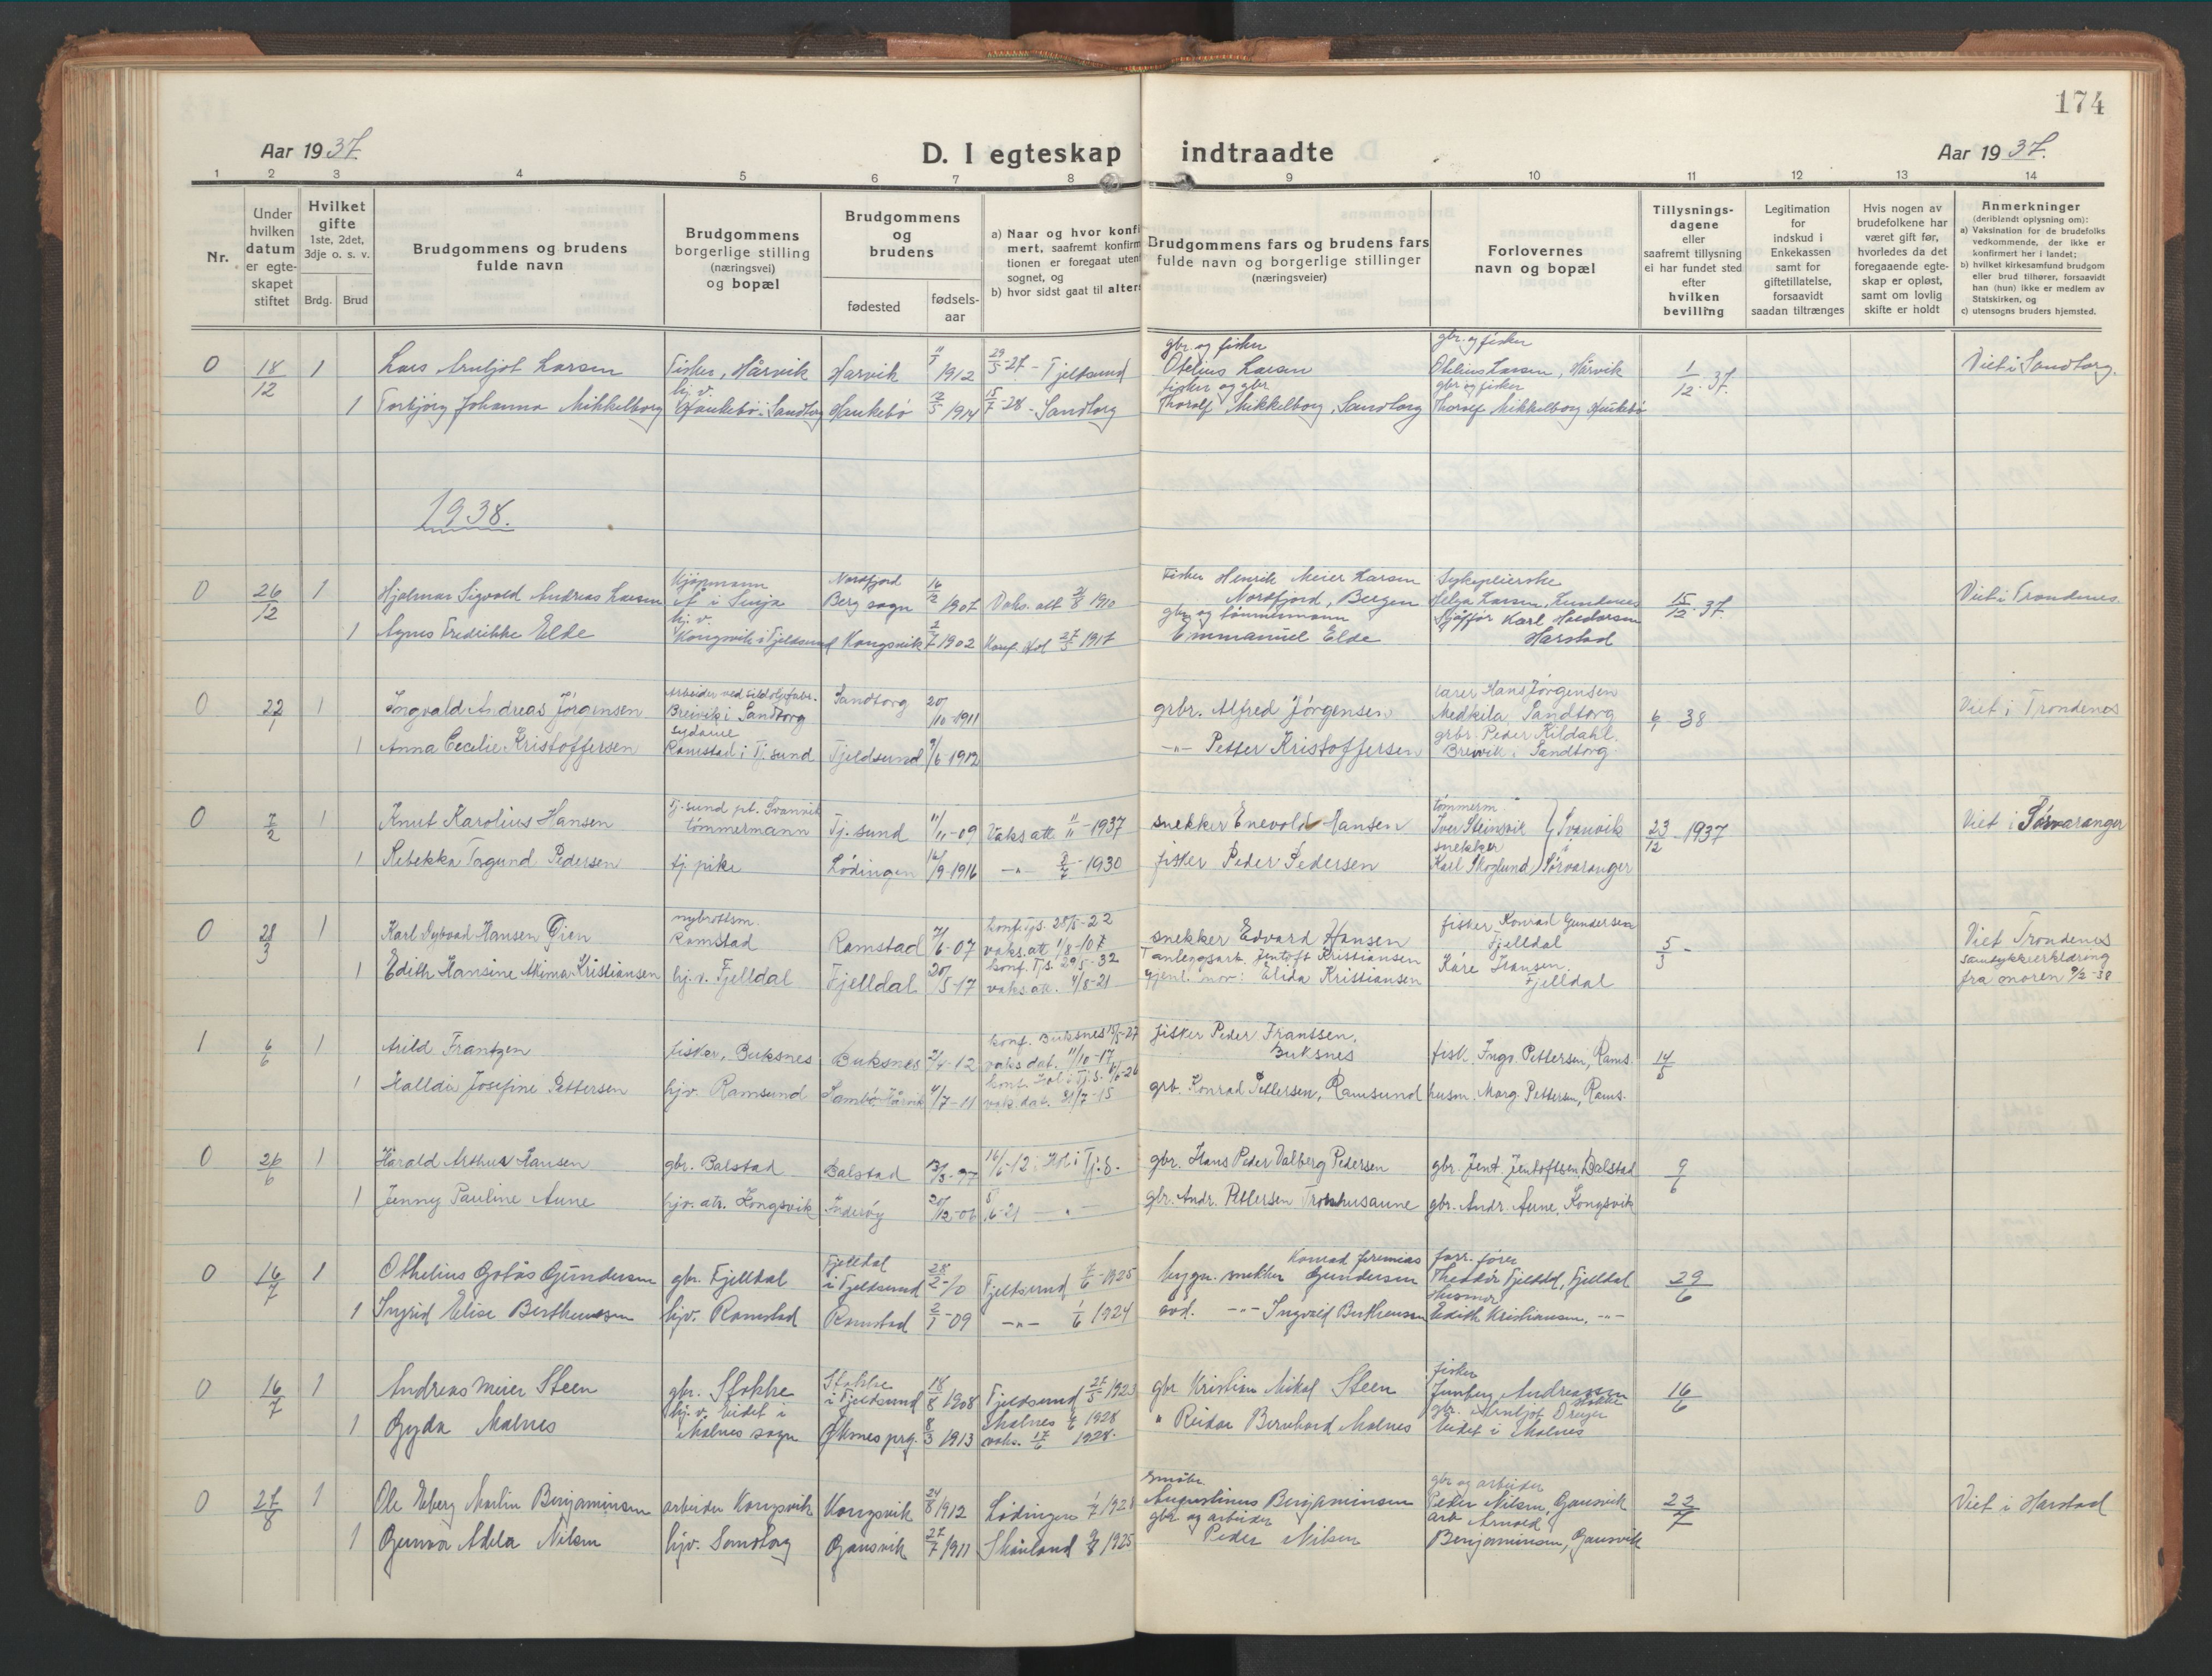 174
Aar 1937.
D. I egteskap indtraadte
Aar 1937.
1 2 3 4 5 6 7 8 9 10 11 12 13 14
Nr.
Under hvilken datum er egteskapet stiftet
Hvilket gifte 1ste, 2det, 3dje o. s. v.
Brdg. Brud
Brudgommens og brudens fulde navn
Brudgommens borgerlige stilling (næringsvei) og bopæl
Brudgommens og brudens
fødested
fødsels-aar
a) Naar og hvor konfi
mert, saafremt konfirm
tionen er foregaat uten
sognet, og
b) hvor sidst gaat til alter
Brudgommens fars og brudens fars fulde navn og borgerlige stillinger (næringsveier)
Forlovernes navn og bopæl
Tillysnings-dagene eller saafremt tillysning ei har fundet sted efter hvilken bevilling
Legitimation for indskud i Enkekassen samt for giftetillatelse, forsaavidt saadan tiltrænges
Hvis nogen av brudefolkene har været gift før, hvorledes da det foregaaende egteskap er opløst, samt om lovlig skifte er holdt
Anmerkninger
(deriblandt oplysning om):
a) Vaksination for de brudefolks vedkommende, der ikke er konfirmert her i landet;
b) hvilket kirkesamfund brudgom eller brud tilhører, forsaavidt han (hun) ikke er medlem av Statskirken, og
c) utensogns bruders hjemsted.
0 18/12 1 Lars Arnljot Larsen Fisker, Hårvik Harvik 1912 29/5-27 - Tjeldsund gbr. og fisker Otelius Larsen gbr. og fisker Otelius Larsen, Hårvik 1/12-37. Viet i Sandtorg.
1 Torbjørg Johanna Mikkelborg hj.v. Haukebø i Sandtorg Haukebø 1914 15/7-28 - Sandtorg fisker og gbr. Thoralf Mikkelborg, Sandtorg gbr og fisker Thoralf Mikkelborg Haukebø
1938.
0 26/12 1 Hjalmar Sigvald Andreas Larsen Kjøpmann Å i Senja Nordfjord Berg sogn 16/2 1907 Vaks. att 1910 Fisker Henrik Meier Larsen Nordfjord, Bergen Sykepleierske Helga Larsen, Lundenes 15/12-37. Viet i Trondenes.
1 Agnes Fredrikke Elde hj.v. Kongsvik i Tjeldsund Kongsvik 2/7 1902 Konf. Hol 27/5 1917 gbr og tømmermann Emmanuel Elde Sjåffør Karl Hoedorsen Harstad
0 22/1 1 Ingvald Andreas Jørgensen arbeider ved sildoljefabr. Breivik i Sandtorg Sandtorg 20/10-1911 grbr. Alfred Jørgensen lærer Hans Jørgensen Medkila, Sandtorg 6/1 38 Viet i Trondenes
1 Anna Cecilie Kristoffersen sydame Ramstad i Tj.sund Tjeldsund 9/6-1912 -"- Petter Kristoffersen grbr. Peder Kildahl Breivik i Sandtorg
0 7/2 1 Knut Karolius Hansen Tj.sund pt. Svanvik tømmermann Tj.sund 11/11-09 Vaks att. 11/11-1937 snekker Enevold Hansen tømmerm. Iver Steinsvik 23/12-1937 Viet i Sørvaranger
1 Rebekka Dagund Pedersen tj pike Lødingen 16/9-1916 -"- 1930 fisker Peder Pedersen snekker Karl Skoglund } Svanvik i Sørvaranger
0 28/3 1 Karl Dybvad Hansen Gien nybrottsm. Ramstad Ramstad 7/6-07 konf.Tjs. 28/5-22 vaks.att. 1/8-07 snekker Edvard Hansen fisker Konrad Gundersen Fjelldal 5/3- Viet Trondenes
1 Edith Hansine Akima Kristiansen hj.v. Fjelldal Fjelldal 20/5-17 konf. Tjs. 29/5-32 vaks.att. 4/8-21 Tanleggsarb. Jentoft Kristiansen Gjenl. mor: Elida Kristiansen Kåre Hansen Fjelldal samtykkeerklæring fra moren 9/2-38
1 6/6 1 Arild Frantzen fisker, Buksnes Buksnes 2/4-12 konf. Buksnes 15/5-27 vaks dat. 11/10-17 fisker Peder Franssen, Buksnes fisk. Ingv. Pettersen, Rams. 14/5
1 Halldis Josefine Pettersen hjv. Ramsund Sambø, Hårvik 4/7-11 konf. Hol i Tj.s. vak.dat. 21/7-15 grb. Konrad Pettersen, Ramsund husm. Marg. Pettersen, Rams.
0 26/6 1 Harald Arthur Hansen gbr. Balstad Balstad 13/3-97 16/6-12. Hol i Tj.s. gbr. Hans Peder Valberg Pedersen gbr. Jent. Jentoftsen, Balstad 9/6
1 Jenny Pauline Aune hjv. atr. Kongsvik Inderøy 20/12-06 5/6-21 -"- gbr. Andr. Pettersen Tronhusaune gbr. Andr. Aune, Kongsvik
0 16/7 1 Othelius Gotås Gundersen gbr. Fjelldal Fjelldal i Tjeldsund 28/2-10 Tjeldsund 7/6-1925 bygn. snekker Konrad Jeremias Gundersen forr. fører Theodor Fjelldal, Fjelldal 29/6
1 Ingrid Elise Bertheussen hjv. Ramstad Ramstad 2/1-09 -"- 1/6 1924 avd. -"- Ingvald Bertheussen Husmor Edith Kristiansen. -"-
0 16/7 1 Andreas Meier Steen gbr. Stokke Stokke i Tjeldsund 18/8 1908 Tjeldsund 27/5 1923 gbr Kristian Nikol Steen fisker Jenberg Andreassen Stokke 16/6
1 Gyda Malnes hj.v. Eidet i Malnes sogn Øksnes prg. 8/3 1913 Malnes 1928 vaks. 17/6 1928. " Reidar Bernhard Malnes gbr. Arnljot Dreyer Eidet i Malnes
0 27/8 1 Ole Eberg Merlin Benjaminsen arbeider Kongsvik Kongsvik 24/8 1912 Lødingen 1/7 1928 småbr. Augustinus Benjaminsen gbr og arbeider Peder Nilsen, Gausvik 22/7 Viet i Harstad
1 Gunvor Adela Nilsen hjv. Sandtorg Gausvik 27/7 1911 Skånland 1925 gbr og arbeider Peder Nilsen arb Arnold Benjaminsen, Gausvik